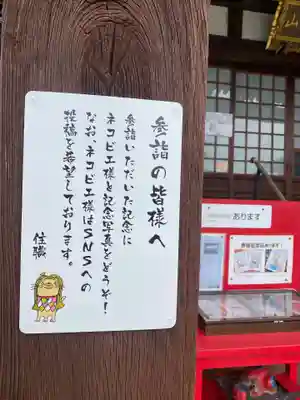 参詣の皆様へ
参詣いただいた記念に
ネコビエ様と記念写真をどうぞ!
なお、ネコビエ様はSNSへの
投稿を希望しております。
住職
おります